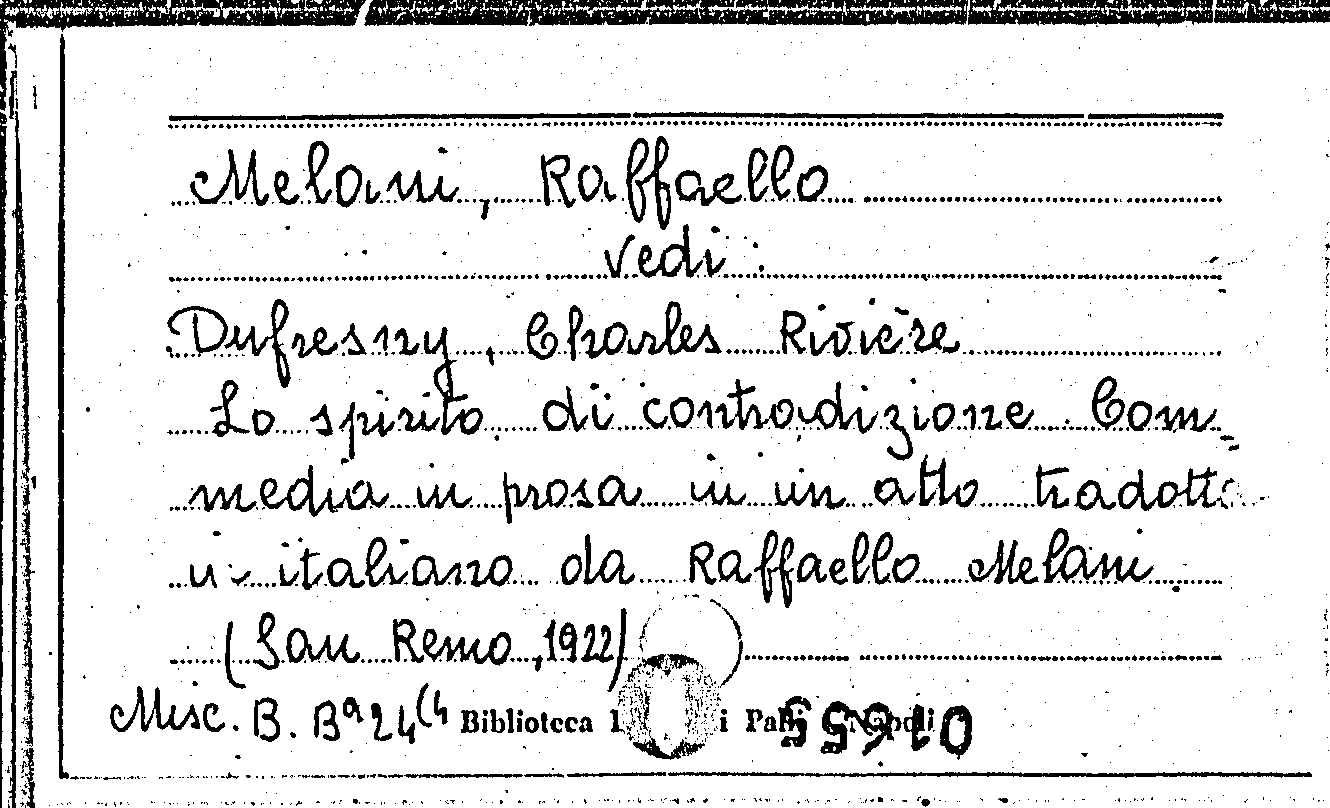 Melani, Raffaello
vedi:
Dufresny, Charles Rivière
Lo spirito di contradizione. Com=
media in prosa in un atto tradotto
in italiano da Raffaello Melani
(San Remo, 1922)
Misc. B. Bª 24(4 Biblioteca Palli Napoli